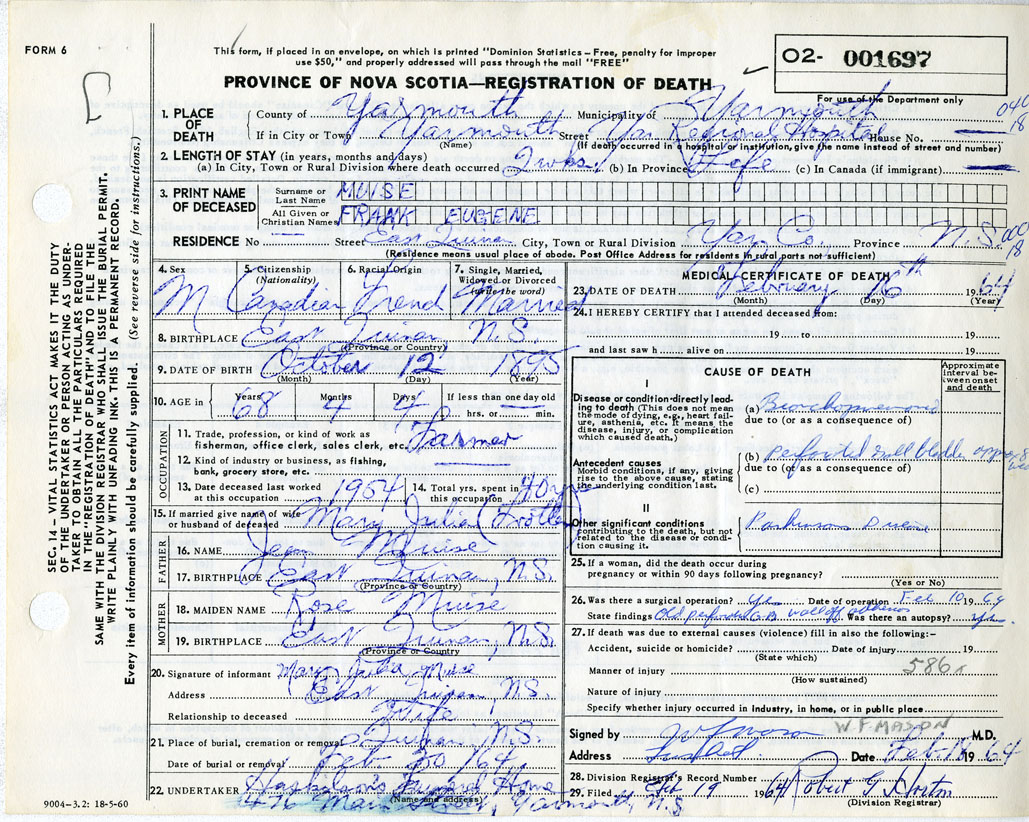 FORM 6
This form, if placed in an envelope, on which is printed "Dominion Statistics – Free, penalty for improper
use $50," and properly addressed will pass through the mail "FREE"
PROVINCE OF NOVA SCOTIA—REGISTRATION OF DEATH
02- 001697
For use of the Department only
SEC. 14 – VITAL STATISTICS ACT MAKES IT THE DUTY
OF THE UNDERTAKER OR PERSON ACTING AS UNDER-
TAKER TO OBTAIN ALL THE PARTICULARS REQUIRED
IN THE "REGISTRATION OF DEATH" AND TO FILE THE
SAME WITH THE DIVISION REGISTRAR WHO SHALL ISSUE THE BURIAL PERMIT.
WRITE PLAINLY WITH UNFADING INK. THIS IS A PERMANENT RECORD.
Every item of information should be carefully supplied. (See reverse side for instructions.)
1. PLACE OF DEATH County of Yarmouth Municipality of Yarmouth 040
If in City or Town Yarmouth Street Yar Regional Hospital House No. 18
(Name) (If death occurred in a hospital or institution, give the name instead of street and number)
2. LENGTH OF STAY (in years, months and days)
(a) In City, Town or Rural Division where death occurred 2 wks. (b) In Province Life (c) In Canada (if immigrant)
3. PRINT NAME OF DECEASED Surname or Last Name MUISE
All Given or Christian Names FRANK EUGENE
RESIDENCE No Street East Quinan City, Town or Rural Division Yar. Co. Province N.S. 18
(Residence means usual place of abode. Post Office Address for residents in rural parts not sufficient)
4. Sex 5. Citizenship (Nationality) 6. Racial Origin 7. Single, Married, Widowed or Divorced (write the word)
M Canadian French Married
8. BIRTHPLACE East Quinan N.S.
(Province or Country)
9. DATE OF BIRTH October 12 1895
(Month) (Day) (Year)
10. AGE in Years 68 Months 4 Days 4 If less than one day old hrs. or min.
OCCUPATION
11. Trade, profession, or kind of work as fisherman, office clerk, sales clerk, etc. Farmer
12. Kind of industry or business, as fishing, bank, grocery store, etc.
13. Date deceased last worked at this occupation 1954 14. Total yrs. spent in this occupation 40 yrs
15. If married give name of wife or husband of deceased Mary Julia (Frotten)
FATHER
16. NAME Jean Muise
17. BIRTHPLACE East Quinan, N.S.
(Province or Country)
MOTHER
18. MAIDEN NAME Rose Muise
19. BIRTHPLACE East Quinan, N.S.
(Province or Country)
20. Signature of informant Mary Julia Muise
Address East Quinan, N.S.
Relationship to deceased Wife
21. Place of burial, cremation or removal Quinan, N.S.
Date of burial or removal Feb 20 1964
22. UNDERTAKER Funeral Home
(Name and address)
Main Street, Yarmouth, N.S.
9004–3.2: 18-5-60
MEDICAL CERTIFICATE OF DEATH
23. DATE OF DEATH February 16th 1964
(Month) (Day) (Year)
24. I HEREBY CERTIFY that I attended deceased from:
19 to 19
and last saw h alive on 19
CAUSE OF DEATH
Approximate interval between onset and death
I
Disease or condition directly leading to death (This does not mean the mode of dying, e.g., heart failure, asthenia, etc. It means the disease, injury, or complication which caused death.)
(a) Bronchopneumonia
due to (or as a consequence of)
Antecedent causes
Morbid conditions, if any, giving rise to the above cause, stating the underlying condition last.
(b) perforated gall bladder approx 8
due to (or as a consequence of)
(c)
II
Other significant conditions contributing to the death, but not related to the disease or condition causing it.
Parkinsons Disease
25. If a woman, did the death occur during pregnancy or within 90 days following pregnancy?
(Yes or No)
26. Was there a surgical operation? Yes Date of operation Feb 10 1964
State findings Old perforated G.B. Was there an autopsy? yes.
27. If death was due to external causes (violence) fill in also the following:–
Accident, suicide or homicide? Date of injury 19
(State which)
Manner of injury 586
(How sustained)
Nature of injury
Specify whether injury occurred in industry, in home, or in public place
W.F. MASON
Signed by W F Mason M.D.
Address Date Feb 18 1964
28. Division Registrar's Record Number
29. Filed Feb 19 1964 Robert G Horton
(Division Registrar)